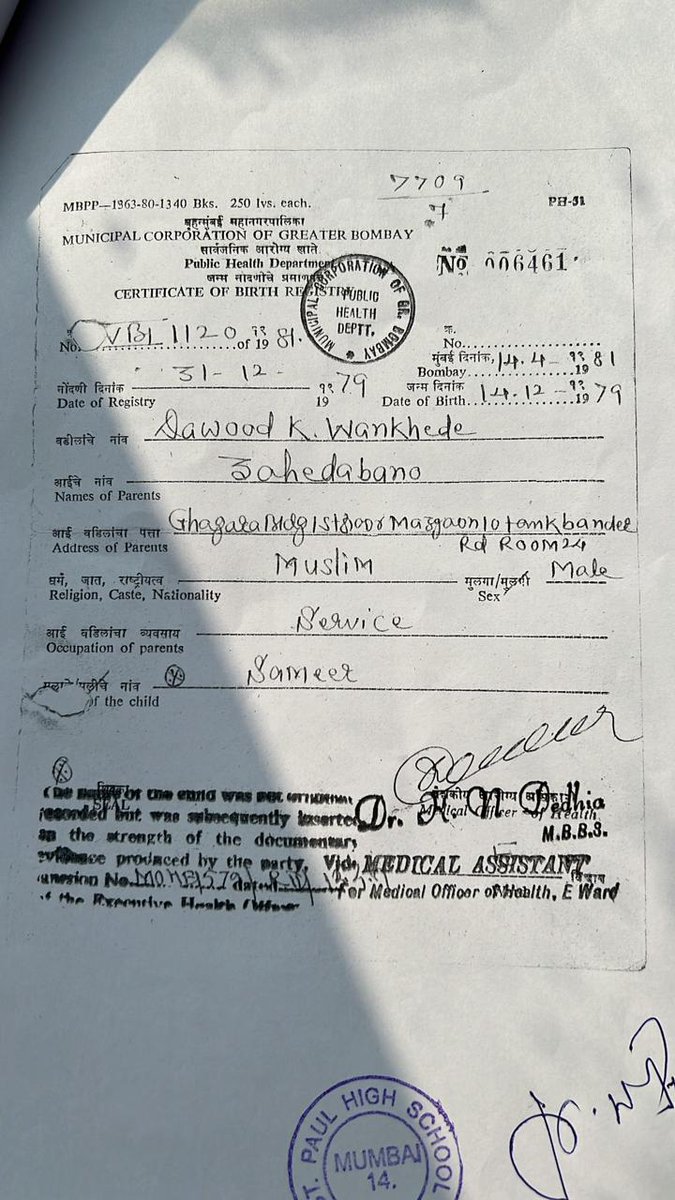 7709
7
MBPP—1963-80-1340 Bks. 250 lvs. each.
PH-51
बृहन्मुंबई महानगरपालिका
MUNICIPAL CORPORATION OF GREATER BOMBAY
सार्वजनिक आरोग्य खाते
Public Health Department
No 006461
जन्म नोंदणीचे
CERTIFICATE OF BIRTH REGISTRY
MUNICIPAL CORPORATION OF GR. BOMBAY
PUBLIC
HEALTH
DEPTT.
No. VBL 1120 of १९ 19 81.
क्र.
No.
मुंबई दिनांक, 14.4- १९ 81
Bombay 19
नोंदणी दिनांक 31-12- १९ 79
Date of Registry 19
जन्म दिनांक 14.12- १९ 79
Date of Birth 19
वडीलांचे नांव Dawood K. Wankhede
आईचे नांव Zahedabano
Names of Parents
आई वडिलांचा पत्ता 1st floor Mazgaon 10 tank bander
Address of Parents Rd ROOM 24
धर्म, जात, राष्ट्रीयत्व Muslim
Religion, Caste, Nationality
मुलगा/मुलगी Male
Sex
आई वडिलांचा व्यवसाय Service
Occupation of parents
नांव Sameer
of the child
The name of the child was not
SEAL
recorded but was subsequently inserted
on the strength of the documentary
evidence produced by the party. Vide
No. dated
of the Executive Health Officer
Dr. H N Dedhia
Medical Officer of Health
M.B.B.S.
MEDICAL ASSISTANT
विभाग
for Medical Officer of Health, E Ward
ST. PAUL HIGH SCHOOL
MUMBAI
14.